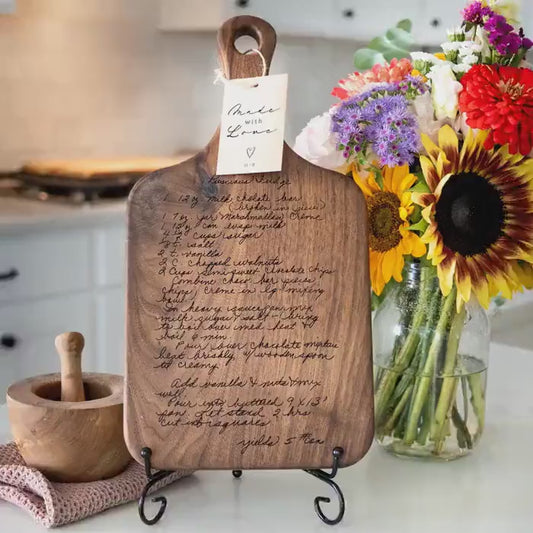 Made
with
Love
Fudge
1 12 oz milk choclate bar
(broken in pieces)
1 7 oz jar Marshmallow Creme
1 12 oz can evap milk
4 ½ cups sugar
salt
vanilla
2 C chopped walnuts
2 Cups semi sweet chocolate chips
Combine choc bar pieces
chips, creme in lg mixing
bowl
In heavy saucepan mix
milk sugar & salt. Bring
to boil over med heat &
boil 6 min
Pour over chocolate mixture
beat briskly w/ wooden spoon
til creamy
Add vanilla & nuts & mix
well
Pour into buttered 9 x 13"
pan. Let stand 2 hrs
cut into squares
yields 5